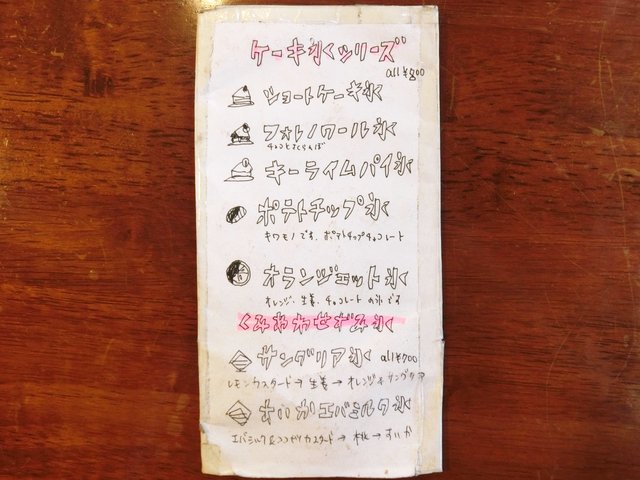 ケーキ氷シリーズ
all ¥800
ショートケーキ氷
フォレノワール氷
チョコとさくらんぼ
キーライムパイ氷
ポテトチップ氷
キワモノです。ポテトチップチョコレート
オランジェット氷
オレンジ、生姜、チョコレートの氷です
くみあわせずみ氷
サングリア氷 all ¥700
レモンカスタード→生姜→オレンジ&サングリア
すいかエバミルク氷
エバミルク&ココナツカスタード→桃→すいか